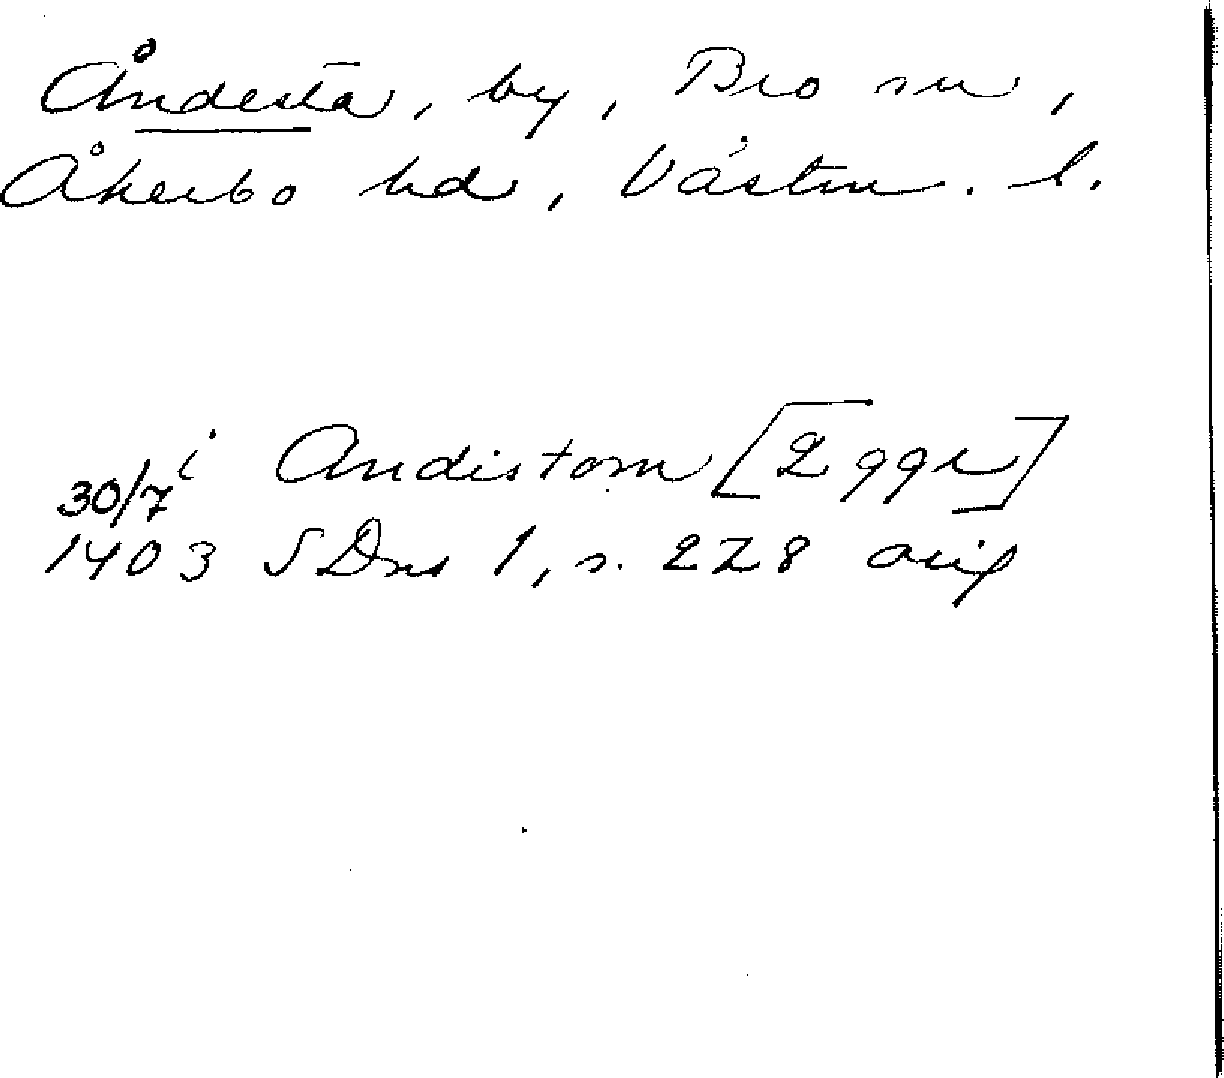 Åndesta, by, Bro sn,
Åkerbo hd, Västm. l.
i Andistom [2 ggr]
30/7
1403 SDns 1, s. 228 orig